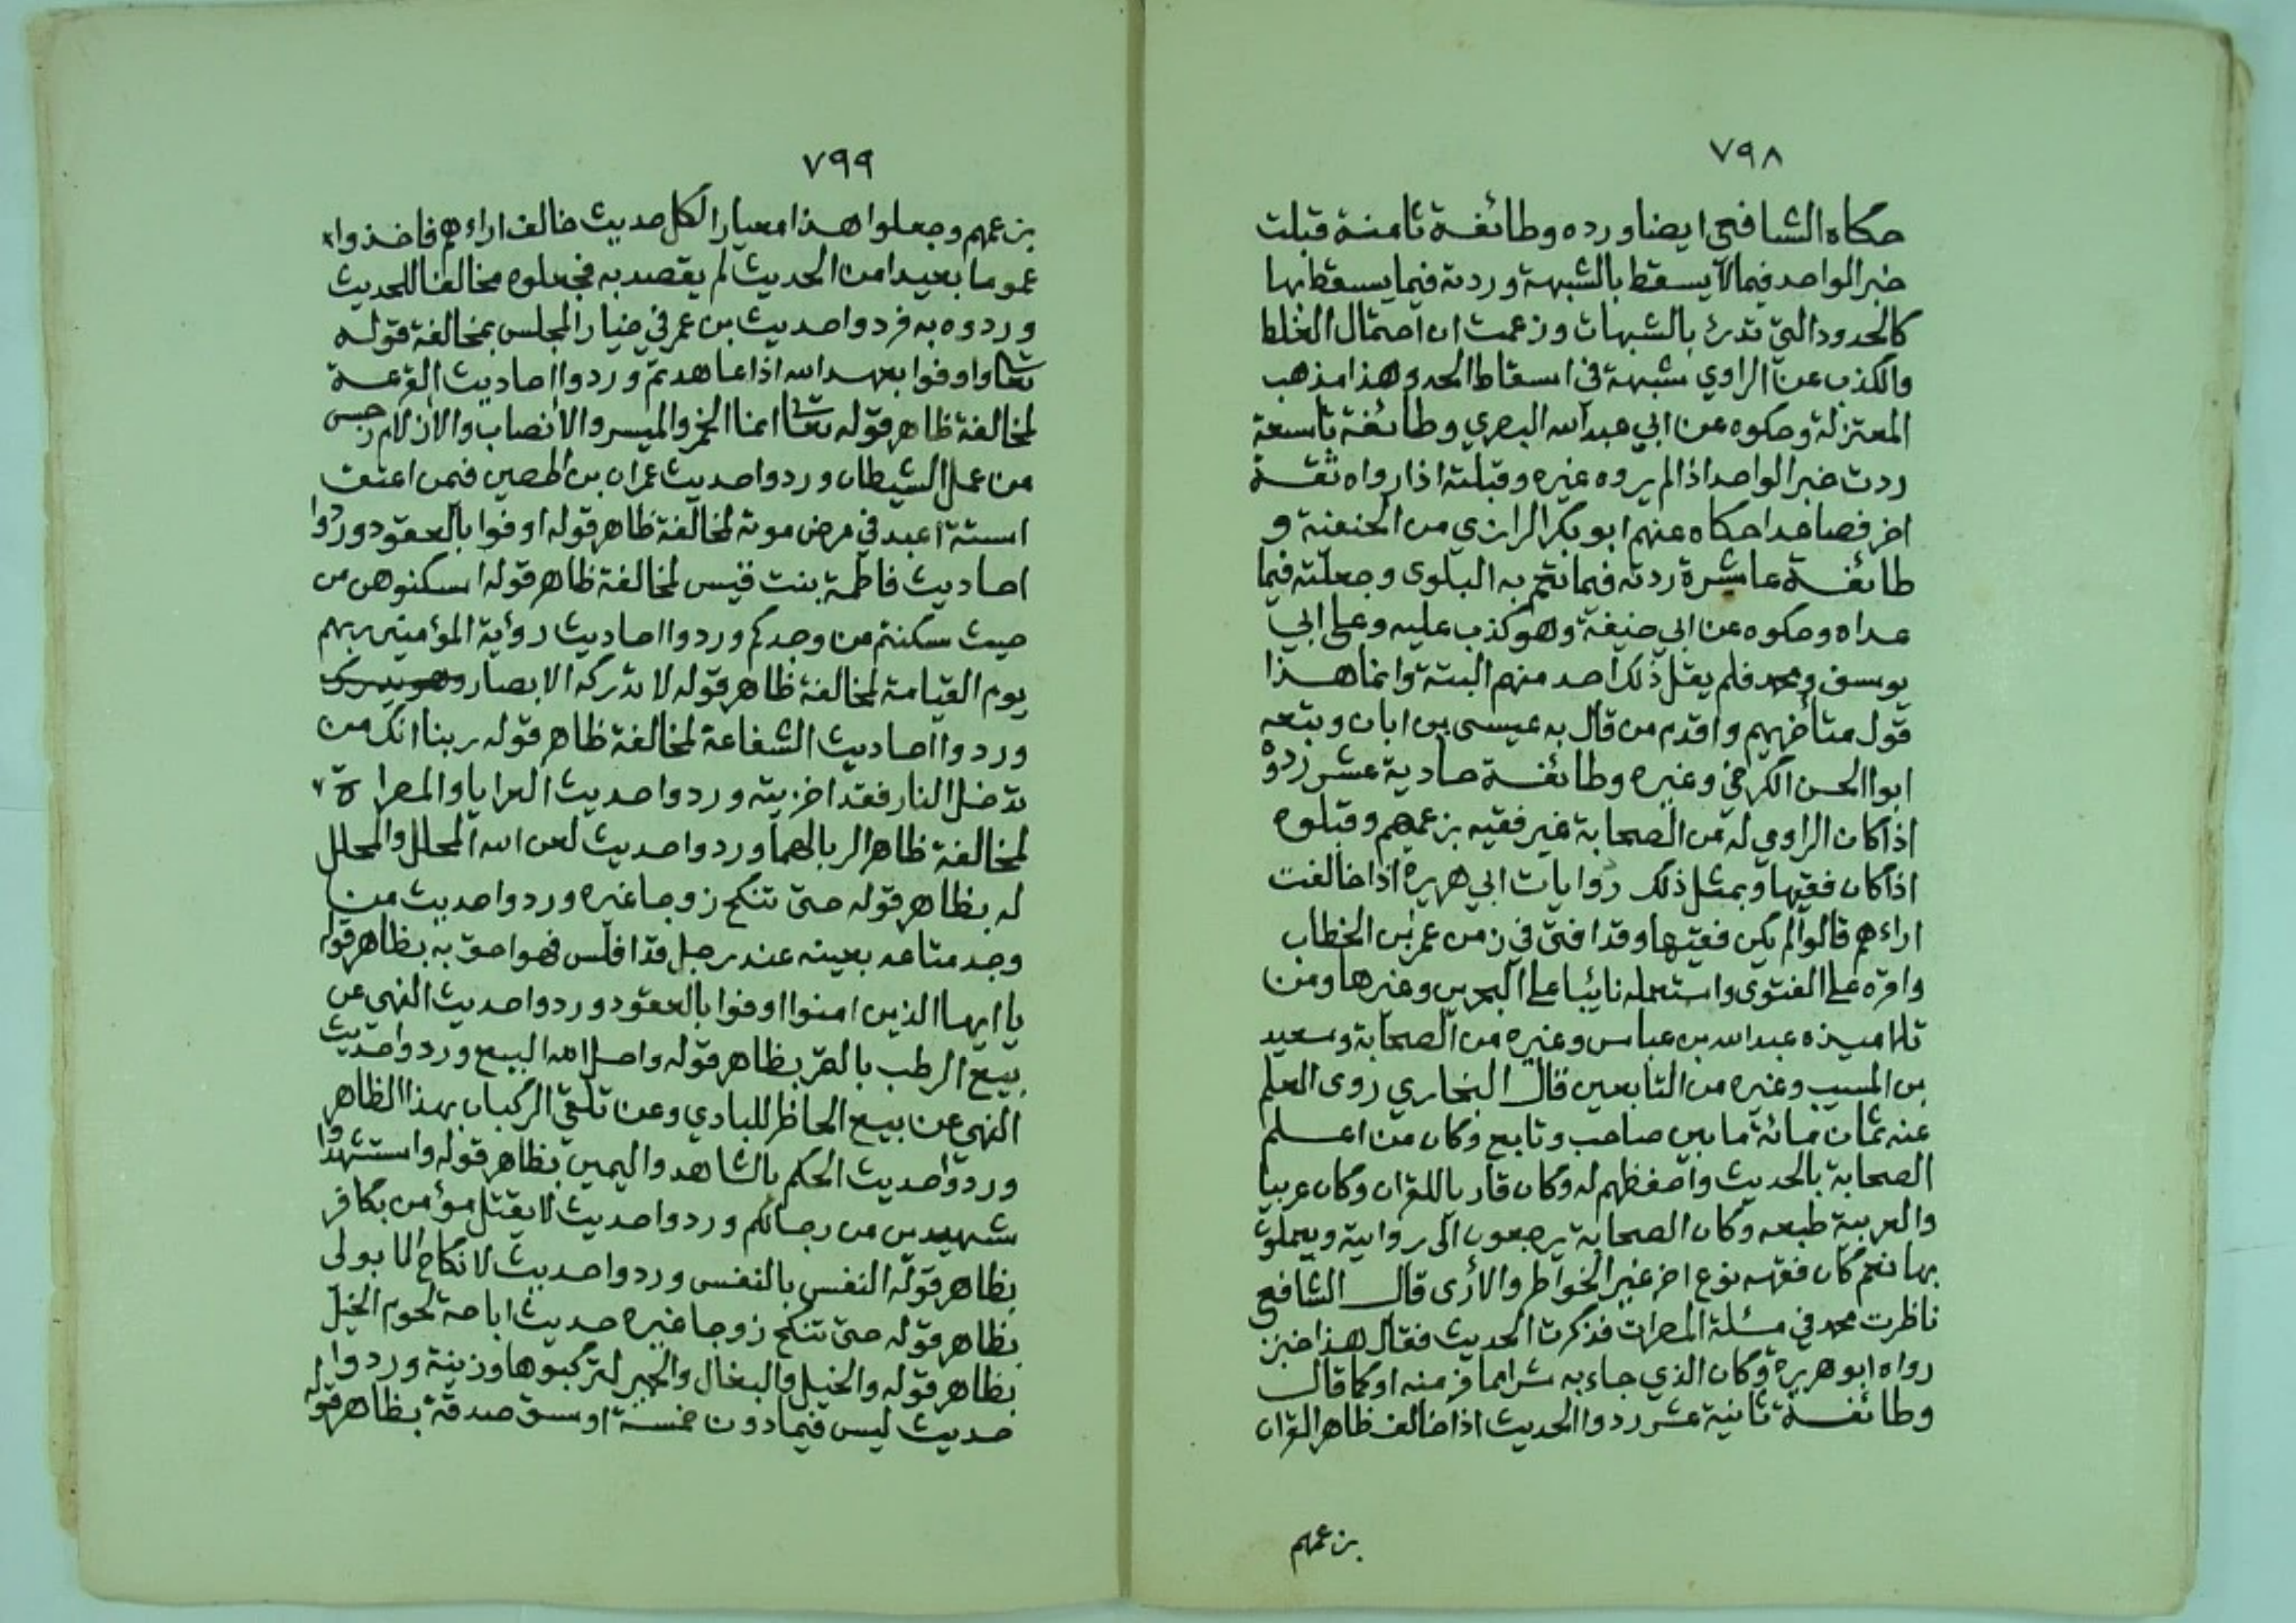 ٧٩٨
حكاه الشافعي ايضا ورده وطائفة ثامنة قبلت
خبر الواحد فيما لا يسقط بالشبهة وردته فيما يسقط بها
كالحدود التي تدرئ بالشبهات وزعمت ان احتمال الغلط
والكذب عن الراوي شبهة في اسقاط الحد وهذا مذهب
المعتزلة وحكوه عن ابي عبد الله البصري وطائفة تاسعة
ردت خبر الواحد اذا لم يروه غيره وقبلته اذا رواه ثقة
اخر فصاعدا حكاه عنهم ابو بكر الرازي من الحنفية و
طائفة عاشرة ردته فيما تعم به البلوى وجعلته فيما
عداه وحكوه عن ابي حنيفة وهو كذب عليه وعلى ابي
يوسف ومحمد فلم يقل ذلك احد منهم البتة وانما هذا
قول متأخريهم واقدم من قال به عيسى بن ابان وبتعه
ابوا الحسن الكرخي وغيره وطائفة حادية عشر ردوه
اذا كان الراوي له من الصحابة غير فقيه بزعمهم وقبلوه
اذا كان فقيها وبمثل ذلك روايات ابي هريرة اذا خالفت
اراءهم قالوا لم يكن فقيها وقد افتى في زمن عمر بن الخطاب
واقره على الفتوى واستعمله نائبا على البحرين وغيرها ومن
تلاميذه عبد الله بن عباس وغيره من الصحابة وسعيد
بن المسيب وغيره من التابعين قال البخاري روى العلم
عنه ثمان مائة ما بين صاحب وتابع وكان من اعلم
الصحابة بالحديث واحفظهم له وكان قاريا للقران وكان عربيا
والعربية طبعه وكان الصحابة يرجعون الى روايية ويعملون
بها نعم كان فقهه نوع اخر غير الخواطر والارى قال الشافعي
ناظرت محمد في مسئلة المصرات فذكرت الحديث فقال هذا خبر
رواه ابو هريرة وكان الذي جاء به شرا مما فر منه او كما قال
وطائفة ثانية عشر ردوا الحديث اذا خالف ظاهر القران
بزعمهم
٧٩٩
بزعمهم وجعلوا هذا معيارا لكل حديث خالف اراءهم فاخذوا
عموما بعيدا من الحديث لم يقصد به فجعلوه مخالفا للحديث
وردوه به فردوا حديث بن عمر في خيار المجلس بمخالفة قوله
تعالى واوفوا بعهد الله اذا عاهدتم وردوا احاديث القرعة
لمخالفة ظاهر قوله تعالى انما الخمر والميسر والانصاب والازلام رجس
من عمل الشيطان وردوا حديث عمران بن الحصين فيمن اعتق
استة اعبد في مرض موته لمخالفة ظاهر قوله اوفوا بالعقود وردوا
احاديث فاطمة بنت قيس لمخالفة ظاهر قوله اسكنوهن من
حيث سكنتم من وجدكم وردوا احاديث رؤية المؤمنين ربهم
يوم القيامة لمخالفة ظاهر قوله لا تدركه الابصار وهو يدرك
وردوا احاديث الشفاعة لمخالفة ظاهر قوله ربنا انك من
تدخل النار فقد اخزيته وردوا حديث العرايا والمصراة
لمخالفة ظاهر الربا لهما وردوا حديث لعن الله المحلل والمحلل
له بظاهر قوله حتى تنكح زوجا غيره وردوا حديث من
وجد متاعه بعينه عند رجل قد افلس فهو احق به بظاهر قوله
يا ايها الذين امنوا اوفوا بالعقود وردوا حديث النهى عن
بيع الرطب بالتمر بظاهر قوله واحل الله البيع وردوا حديث
النهي عن بيع الحاظر للبادي وعن تلقي الركبان بهذا الظاهر
وردوا حديث الحكم بالشاهد واليمين بظاهر قوله واستشهدوا
شهيدين من رجالكم وردوا حديث لا يقتل مؤمن بكافر
بظاهر قوله النفس بالنفس وردوا حديث لا نكاح الا بولى
بظاهر قوله حتى تنكح زوجا غيره حديث اباحة لحوم الخيل
بظاهر قوله والخيل والبغال والحمير لتركبوها وزينة وردوا
حديث ليس فيما دون خمسة اوسق صدقة بظاهر قوله